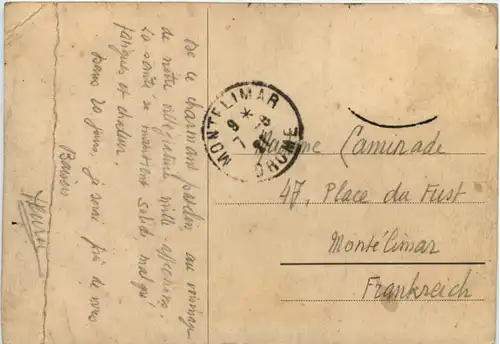 De ce charmant jardin au voisinage
de notre villégiature mille affections.
La santé se maintient solide, malgré
fatigues et chaleur.
Dans 20 jours, je serai près de vous
Baisers
MONTELIMAR
DROME
Madame Caminade
47, Place du Fust
Montélimar
Frankreich